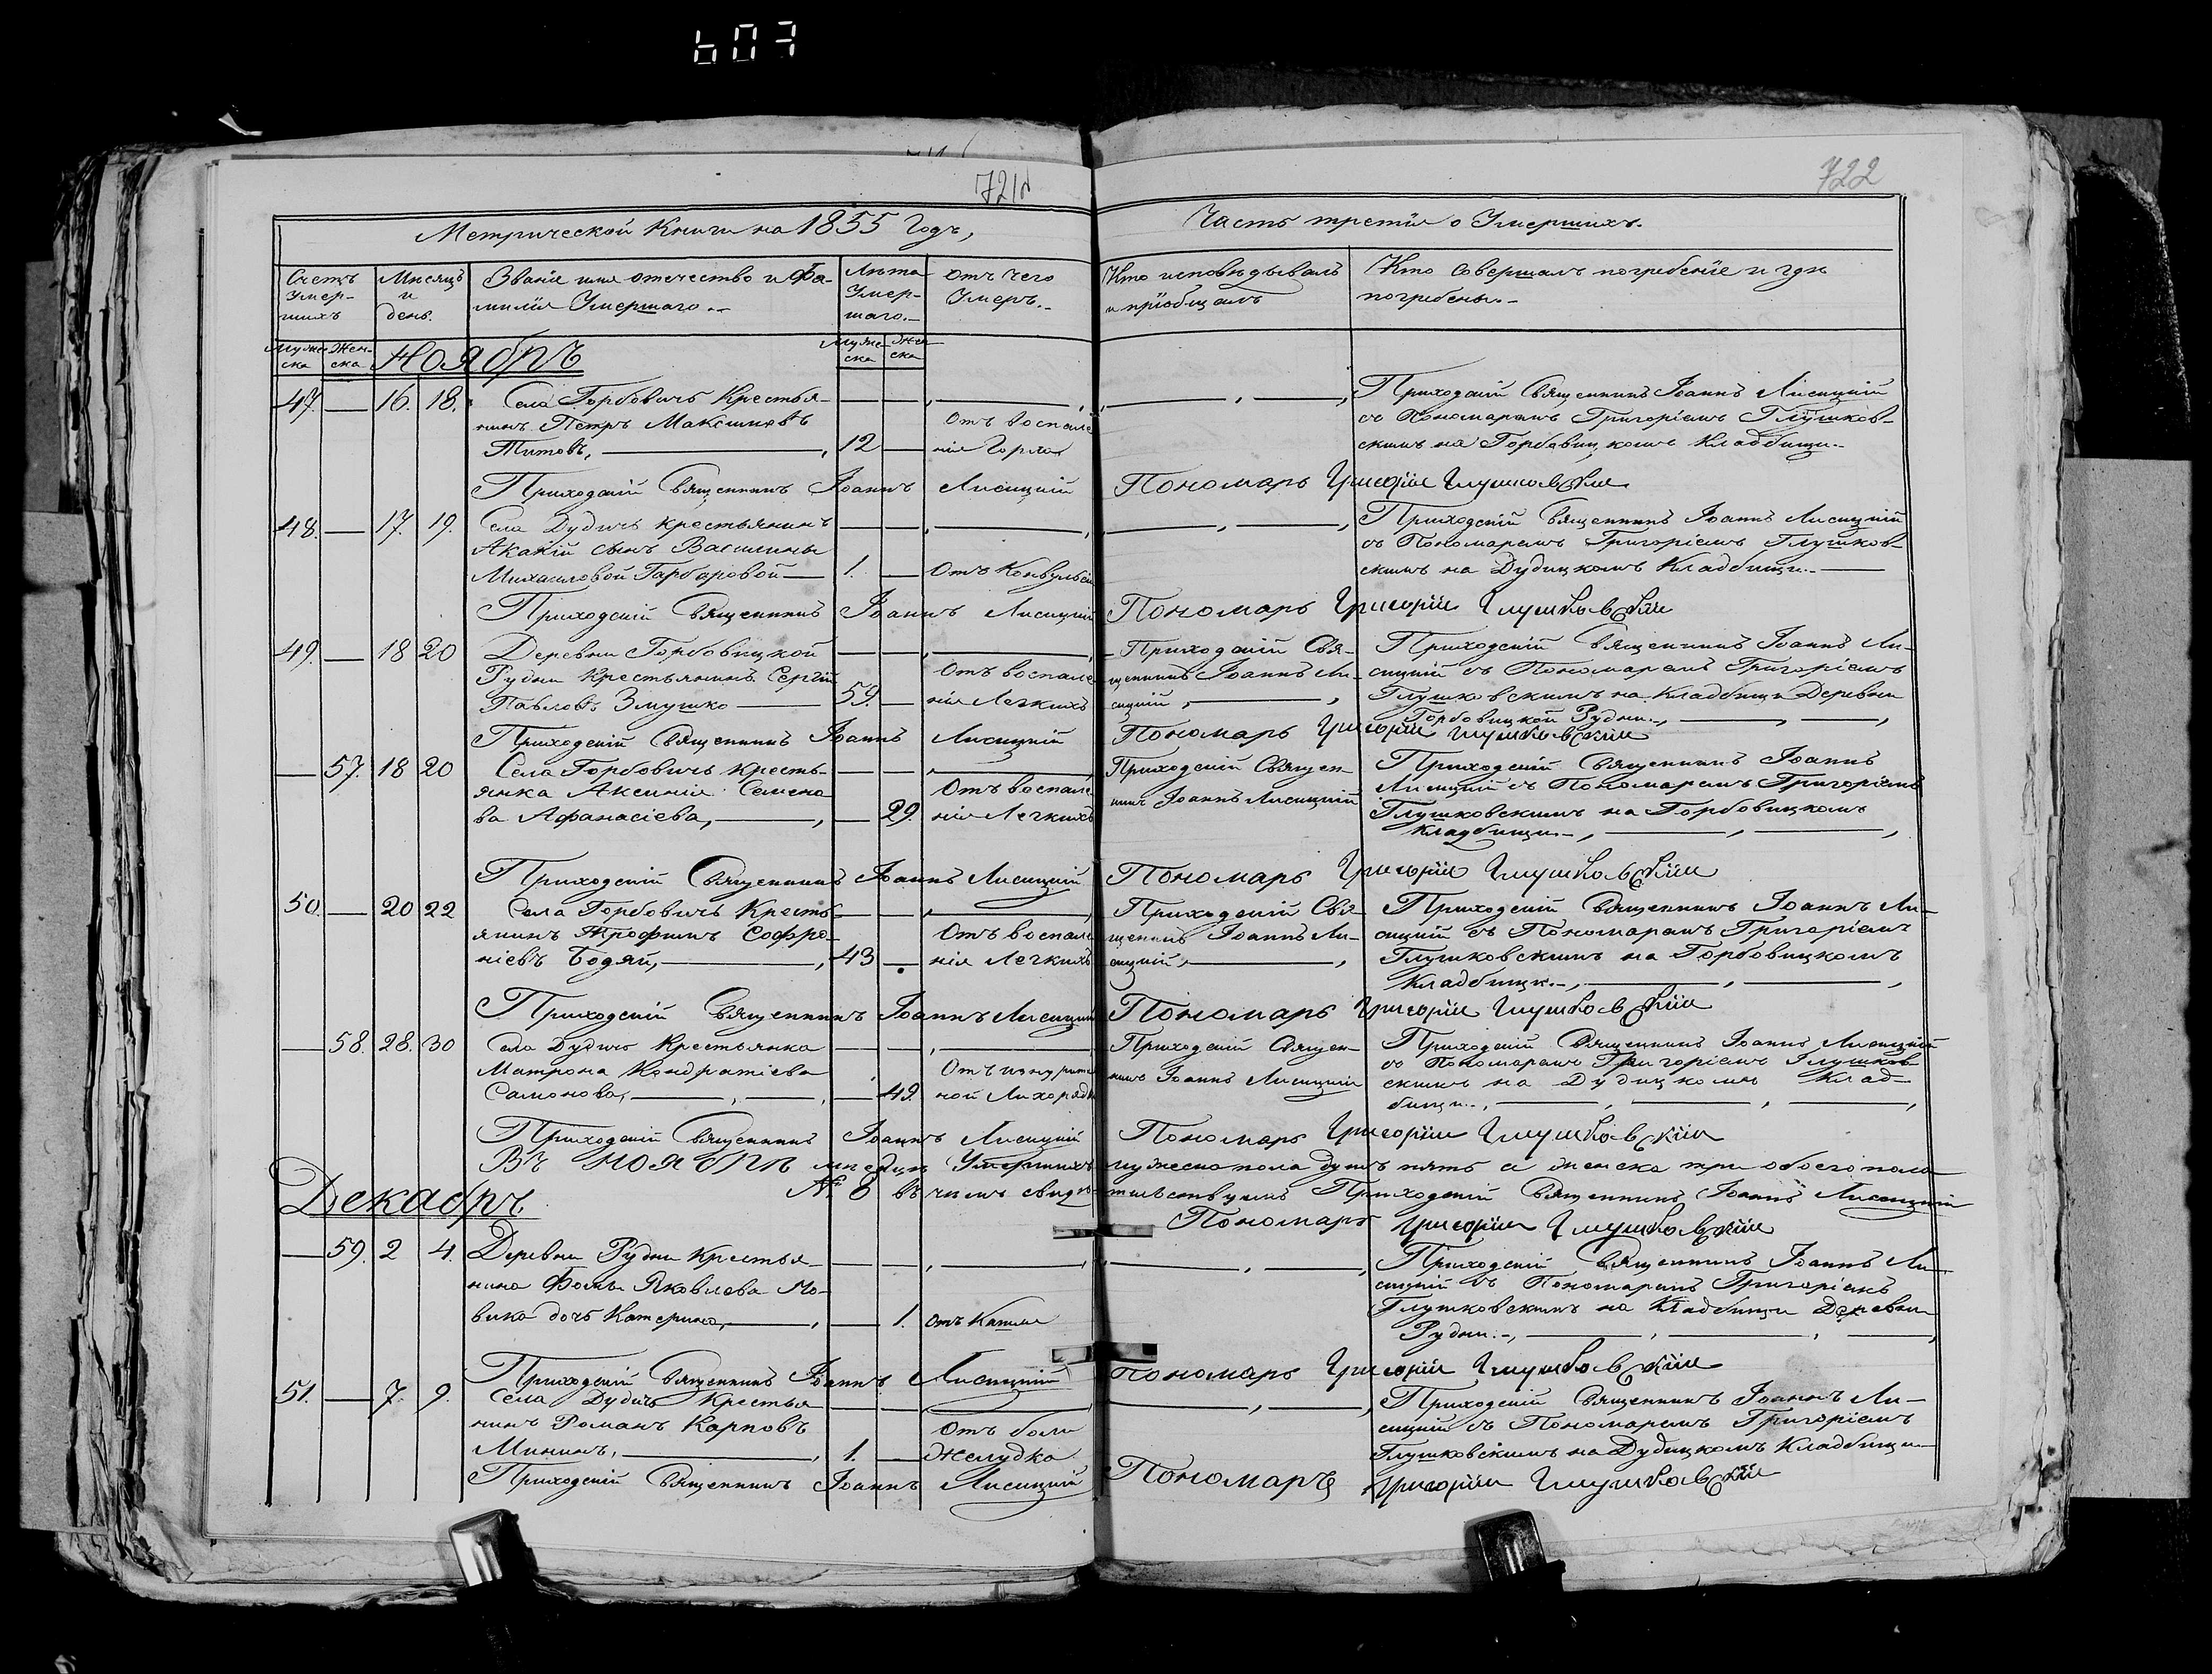 607
721
722
Метрической Книги на 1855 Годъ,
Часть третія о Умершихъ.
Счетъ Умер-шихъ
Мѣсяцъ и день.
Званіе имя отечество и Фа-
милія Умершаго.
Лѣта Умер-шаго.
Отъ чего Умеръ.
Кто исповѣдывалъ
и пріобщалъ
Кто совершалъ погребеніе и гдѣ
погребены.
Муже-ска Жен-ска
Муже-ска Жен-ска
Ноябрь
47. — 16. 18.
Села Горбовичъ Крестья-
нинъ Петръ Максимовъ
Титовъ, 12 —
Отъ воспале
нія Горла
Приходскій Священникъ Іоаннъ Лисицкій
съ Пономаремъ Григоріемъ Глушков-
скимъ на Горбовицкомъ Кладбищи.
Приходскій Священникъ Іоаннъ Лисицкій Пономарь Григорій Глушковскій
48. — 17. 19.
Села Дудичъ крестьянинъ
Акакій сынъ Василины
Михаиловой Гарбаровой — 1. — Отъ Конвульсіи
Приходскій Священникъ Іоаннъ Лисицкій
съ Пономаремъ Григоріемъ Глушков-
скимъ на Дудицкомъ Кладбищи.
Приходскій Священникъ Іоаннъ Лисицкій Пономарь Григорій Глушковскій
49. — 18 20
Деревни Горбовицкой
Рудни Крестьянинъ Сергій
Павловъ Змушко — 59. —
Отъ воспале
нія Легкихъ
Приходскій Свя-
щенникъ Іоаннъ Ли-
сицкій
Приходскій Священникъ Іоаннъ Ли-
сицкій съ Пономаремъ Григоріемъ
Глушковскимъ на Кладбищи Деревни
Горбовицкой Рудни.
Приходскій Священникъ Іоаннъ Лисицкій Пономарь Григорій Глушковскій
— 57. 18 20
Села Горбовичъ кресть-
янка Аксинія Семено
ва Афанасіева, — 29.
Отъ воспале
нія Легкихъ
Приходскій Священ-
никъ Іоаннъ Лисицкій
Приходскій Священникъ Іоаннъ
Лисицкій съ Пономаремъ Григоріемъ
Глушковскимъ на Горбовицкомъ
Кладбищи.
Приходскій Священникъ Іоаннъ Лисицкій Пономарь Григорій Глушковскій
50. — 20 22
Села Горбовичъ Кресть-
янинъ Трофимъ Софро-
ніевъ Бодяй, 43 —
Отъ воспале
нія Легкихъ
Приходскій Свя-
щенникъ Іоаннъ Ли-
сицкій,
Приходскій Священникъ Іоаннъ Ли-
сицкій съ Пономаремъ Григоріемъ
Глушковскимъ на Горбовицкомъ
Кладбищи.
Приходскій Священникъ Іоаннъ Лисицкій Пономарь Григорій Глушковскій
— 58. 28. 30
Села Дудичъ Крестьянка
Матрона Кондратіева
Самонова, — 49.
Отъ изнурите
ной Лихорадки
Приходскій Священ-
никъ Іоаннъ Лисицкій
Приходскій Священникъ Іоаннъ Лисицкій
съ Пономаремъ Григоріемъ Глушков-
скимъ на Дудицкомъ Клад-
бищи.
Приходскій Священникъ Іоаннъ Лисицкій Пономарь Григорій Глушковскій
Въ ноябрѣ мѣсяцѣ Умершихъ мужеска пола душъ пять а женска три обоего пола
№ 8 въ чемъ свидѣтельствуемъ Приходскій Священникъ Іоаннъ Лисицкій
Пономарь Григорій Глушковскій
Декабрь
— 59. 2 4.
Деревни Рудни Крестья-
нина Фомы Яковлева Но-
вика дочь Катерина, — 1. отъ Кашли
Приходскій Священникъ Іоаннъ Ли-
сицкій съ Пономаремъ Григоріемъ
Глушковскимъ на Кладбищи Деревни
Рудни.
Приходскій Священникъ Іоаннъ Лисицкій Пономарь Григорій Глушковскій
51. — 7. 9.
Села Дудичъ Крестья
нинъ Романъ Карповъ
Мининъ, 1. —
Отъ боли
Желудка
Приходскій Священникъ Іоаннъ Ли-
сицкій съ Пономаремъ Григоріемъ
Глушковскимъ на Дудицкомъ Кладбищи
Приходскій Священникъ Іоаннъ Лисицкій Пономарь Григорій Глушковскій